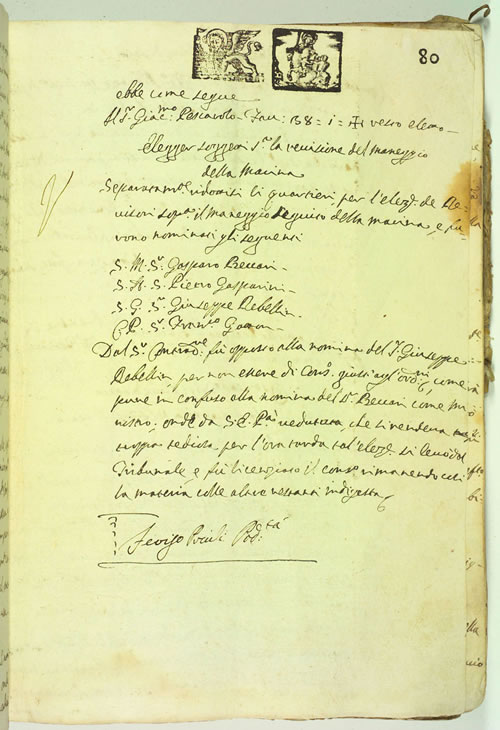 80
ebbe come segue
Il Sr. Giac.mo Pescarolo - Fau: 138 = 1 =
Elegger soggetti la revisione del maneggio
della Macina
Separatam.te udoniti li quartieri per l'elez. de Re-
visori sopra il maneggio seguito della macina, e fu
rono nominati gli seguenti
S. M. Sr. Gasparo Beccari
S. N. S. Pietro Gasparini
S. G. Sr. Giuseppe Rebellin
C. P. Sr. Fran.co
Dal Sr. fù opposto alla nomina del Sr. Giuseppe
Rebellin per non essere di Cons.o giusti agl' ord.ni come
pure in confuso alla nomina del Sr. Beccari come Mi
nistro, onde da S. E. P.tà vedutosi, che si rendeva
troppo tediosa per l'ora tarda tal elez. si levò dal
Tribunale e fù licenziato il cons.o rimanendo così
la materia colle altre restanti indigesta
Priuli Pod.tà